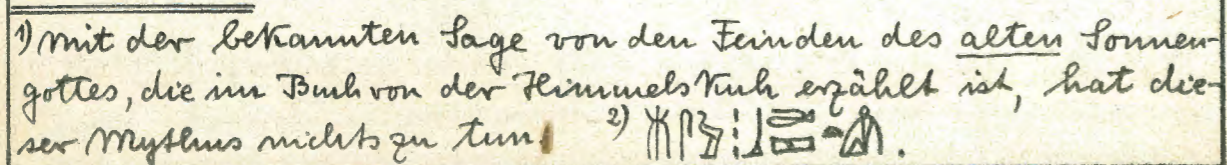 1) Mit der bekannten Sage von den Feinden des alten Sonnen-
gottes, die im Buch von der Himmelskuh erzählt ist, hat die-
ser Mythus nichts zu tun. 2)